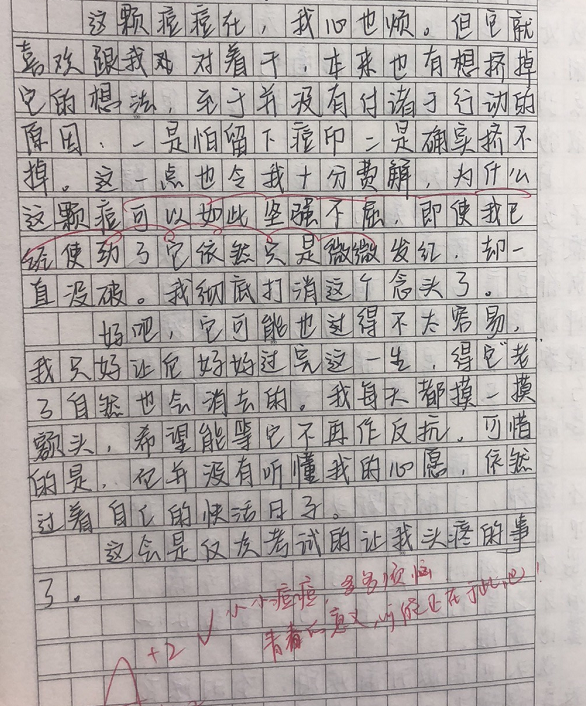 这颗痘痘在，我心也烦。但它就
喜欢跟我对着干，本来也有想挤掉
它的想法，至于并没有付诸于行动的
原因：一是怕留下痘印二是确实挤不
掉。这一点也令我十分费解，为什么
这颗痘可以如此坚强不屈，即使我已
给使劲了它依然只是微微发红，却一
直没破。我彻底打消这个念头了。
好吧，它可能也过得不太容易，
我只好让它好好过完这一生，得它老
了自然也会消去的。我每天都摸一摸
额头，希望能等它不再作反抗。可惜
的是，它并没有听懂我的心愿，依然
过着自己的快活日子。
这会是仅次考试的让我头疼的事
了。
+2
小小痘痘，多多烦恼
青春的意义，可能正在于此吧！